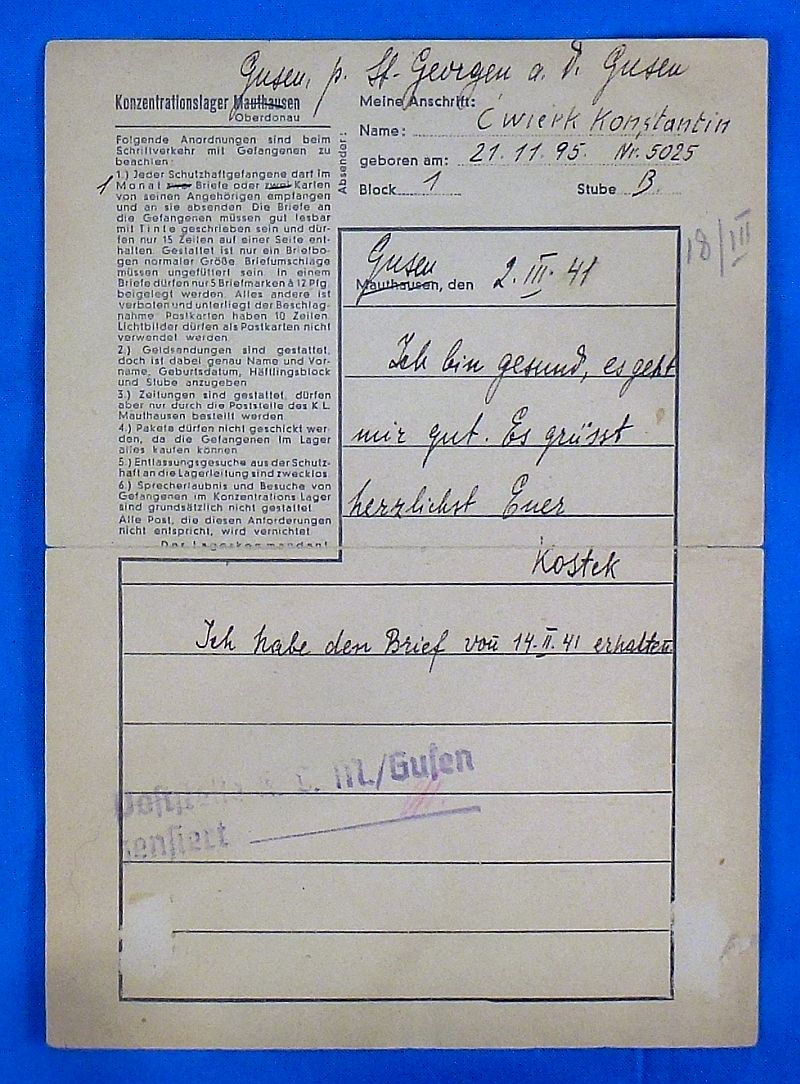 Gusen, p. St-Georgen a. d. Gusen
Konzentrationslager Mauthausen
Oberdonau
Folgende Anordnungen sind beim
Schriftverkehr mit Gefangenen zu
beachten:
1.) Jeder Schutzhaftgefangene darf im
1 Monat zwei Briefe oder zwei Karten
von seinen Angehörigen empfangen
und an sie absenden. Die Briefe an
die Gefangenen müssen gut lesbar
mit Tinte geschrieben sein und dür-
fen nur 15 Zeilen auf einer Seite ent-
halten. Gestattet ist nur ein Briefbo-
gen normaler Größe. Briefumschläge
müssen ungefüttert sein. In einem
Briefe dürfen nur 5 Briefmarken à 12 Pfg.
beigelegt werden. Alles andere ist
verboten und unterliegt der Beschlag-
nahme. Postkarten haben 10 Zeilen.
Lichtbilder dürfen als Postkarten nicht
verwendet werden.
2.) Geldsendungen sind gestattet,
doch ist dabei genau Name und Vor-
name, Geburtsdatum, Häftlingsblock
und Stube anzugeben.
3.) Zeitungen sind gestattet, dürfen
aber nur durch die Poststelle des K.L.
Mauthausen bestellt werden.
4.) Pakete dürfen nicht geschickt wer-
den, da die Gefangenen im Lager
alles kaufen können.
5.) Entlassungsgesuche aus der Schutz-
haft an die Lagerleitung sind zwecklos.
6.) Sprecherlaubnis und Besuche von
Gefangenen im Konzentrations Lager
sind grundsätzlich nicht gestattet.
Alle Post, die diesen Anforderungen
nicht entspricht, wird vernichtet.
Der Lagerkommandant
Absender:
Meine Anschrift:
Name: Ćwierk Konstantin
geboren am: 21.11.95. Nr. 5025
Block 1 Stube B
18/III
Gusen
Mauthausen, den 2.III.41
Ich bin gesund, es geht
mir gut. Es grüsst
herzlichst Euer
Kostek
Ich habe den Brief von 14.II.41 erhalten
Poststelle K. L. M./Gusen
zensiert